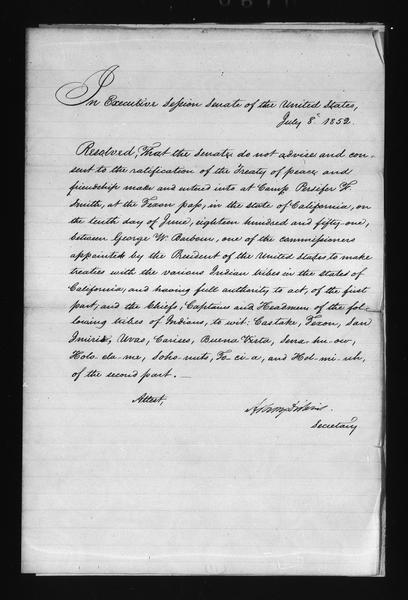 In Executive Session Senate of the United States,
July 8. 1852.
Resolved, That the Senate do not advise and con-
sent to the ratification of the Treaty of peace and
friendship made and entered into at Camp Persifer F.
Smith, at the Texon pass, in the state of California, on
the tenth day of June, eighteen hundred and fifty-one,
between George W. Barbour, one of the commissioners
appointed by the President of the United States to make
treaties with the various Indian tribes in the state of
California, and having full authority to act, of the first
part, and the Chiefs, Captains and Headmen of the fol-
lowing tribes of Indians, to wit: Castake, Texon, San
Imirio, Uvas, Carises, Buena Vista, Sena-hu-ow,
Holo-cla-me, Soho-nuts, To-ci-a, and Hol-mi-uh,
of the second part. —
Attest,
Asbury Dickins
Secretary